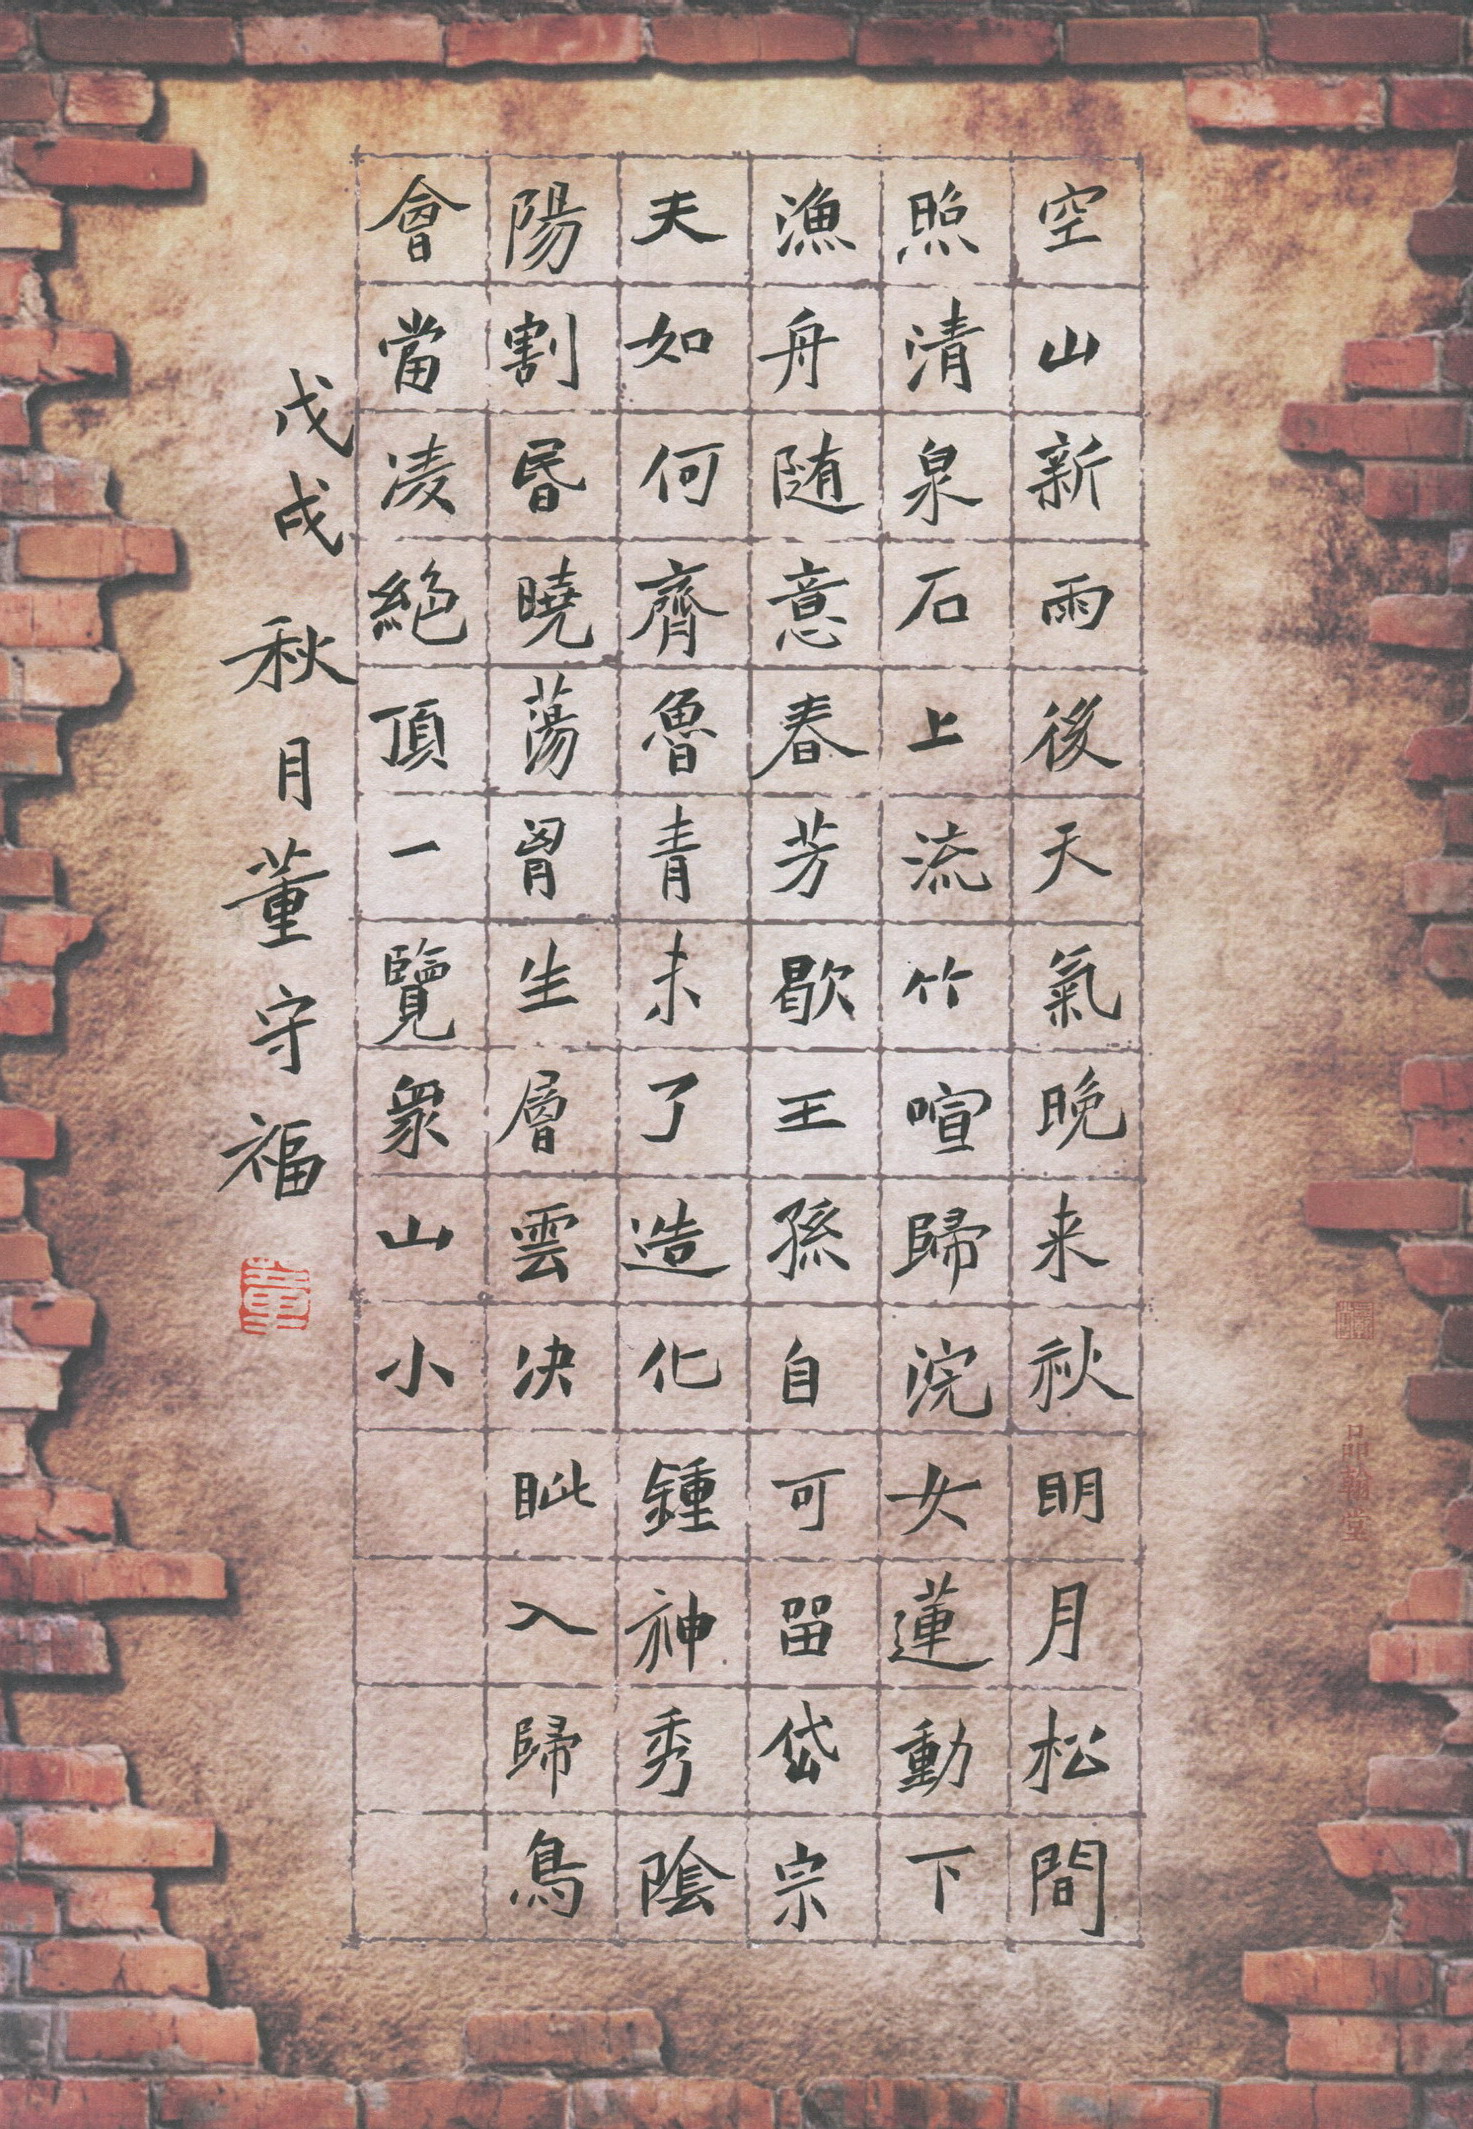 空山新雨後天氣晚来秋明月松間
照清泉石上流竹喧歸浣女蓮動下
漁舟随意春芳歇王孫自可留岱宗
夫如何齊魯青未了造化鍾神秀陰
陽割昏曉蕩胷生層雲决眦入歸鳥
會當凌絕頂一覽衆山小
戊戌秋月董守福
董
品翰堂